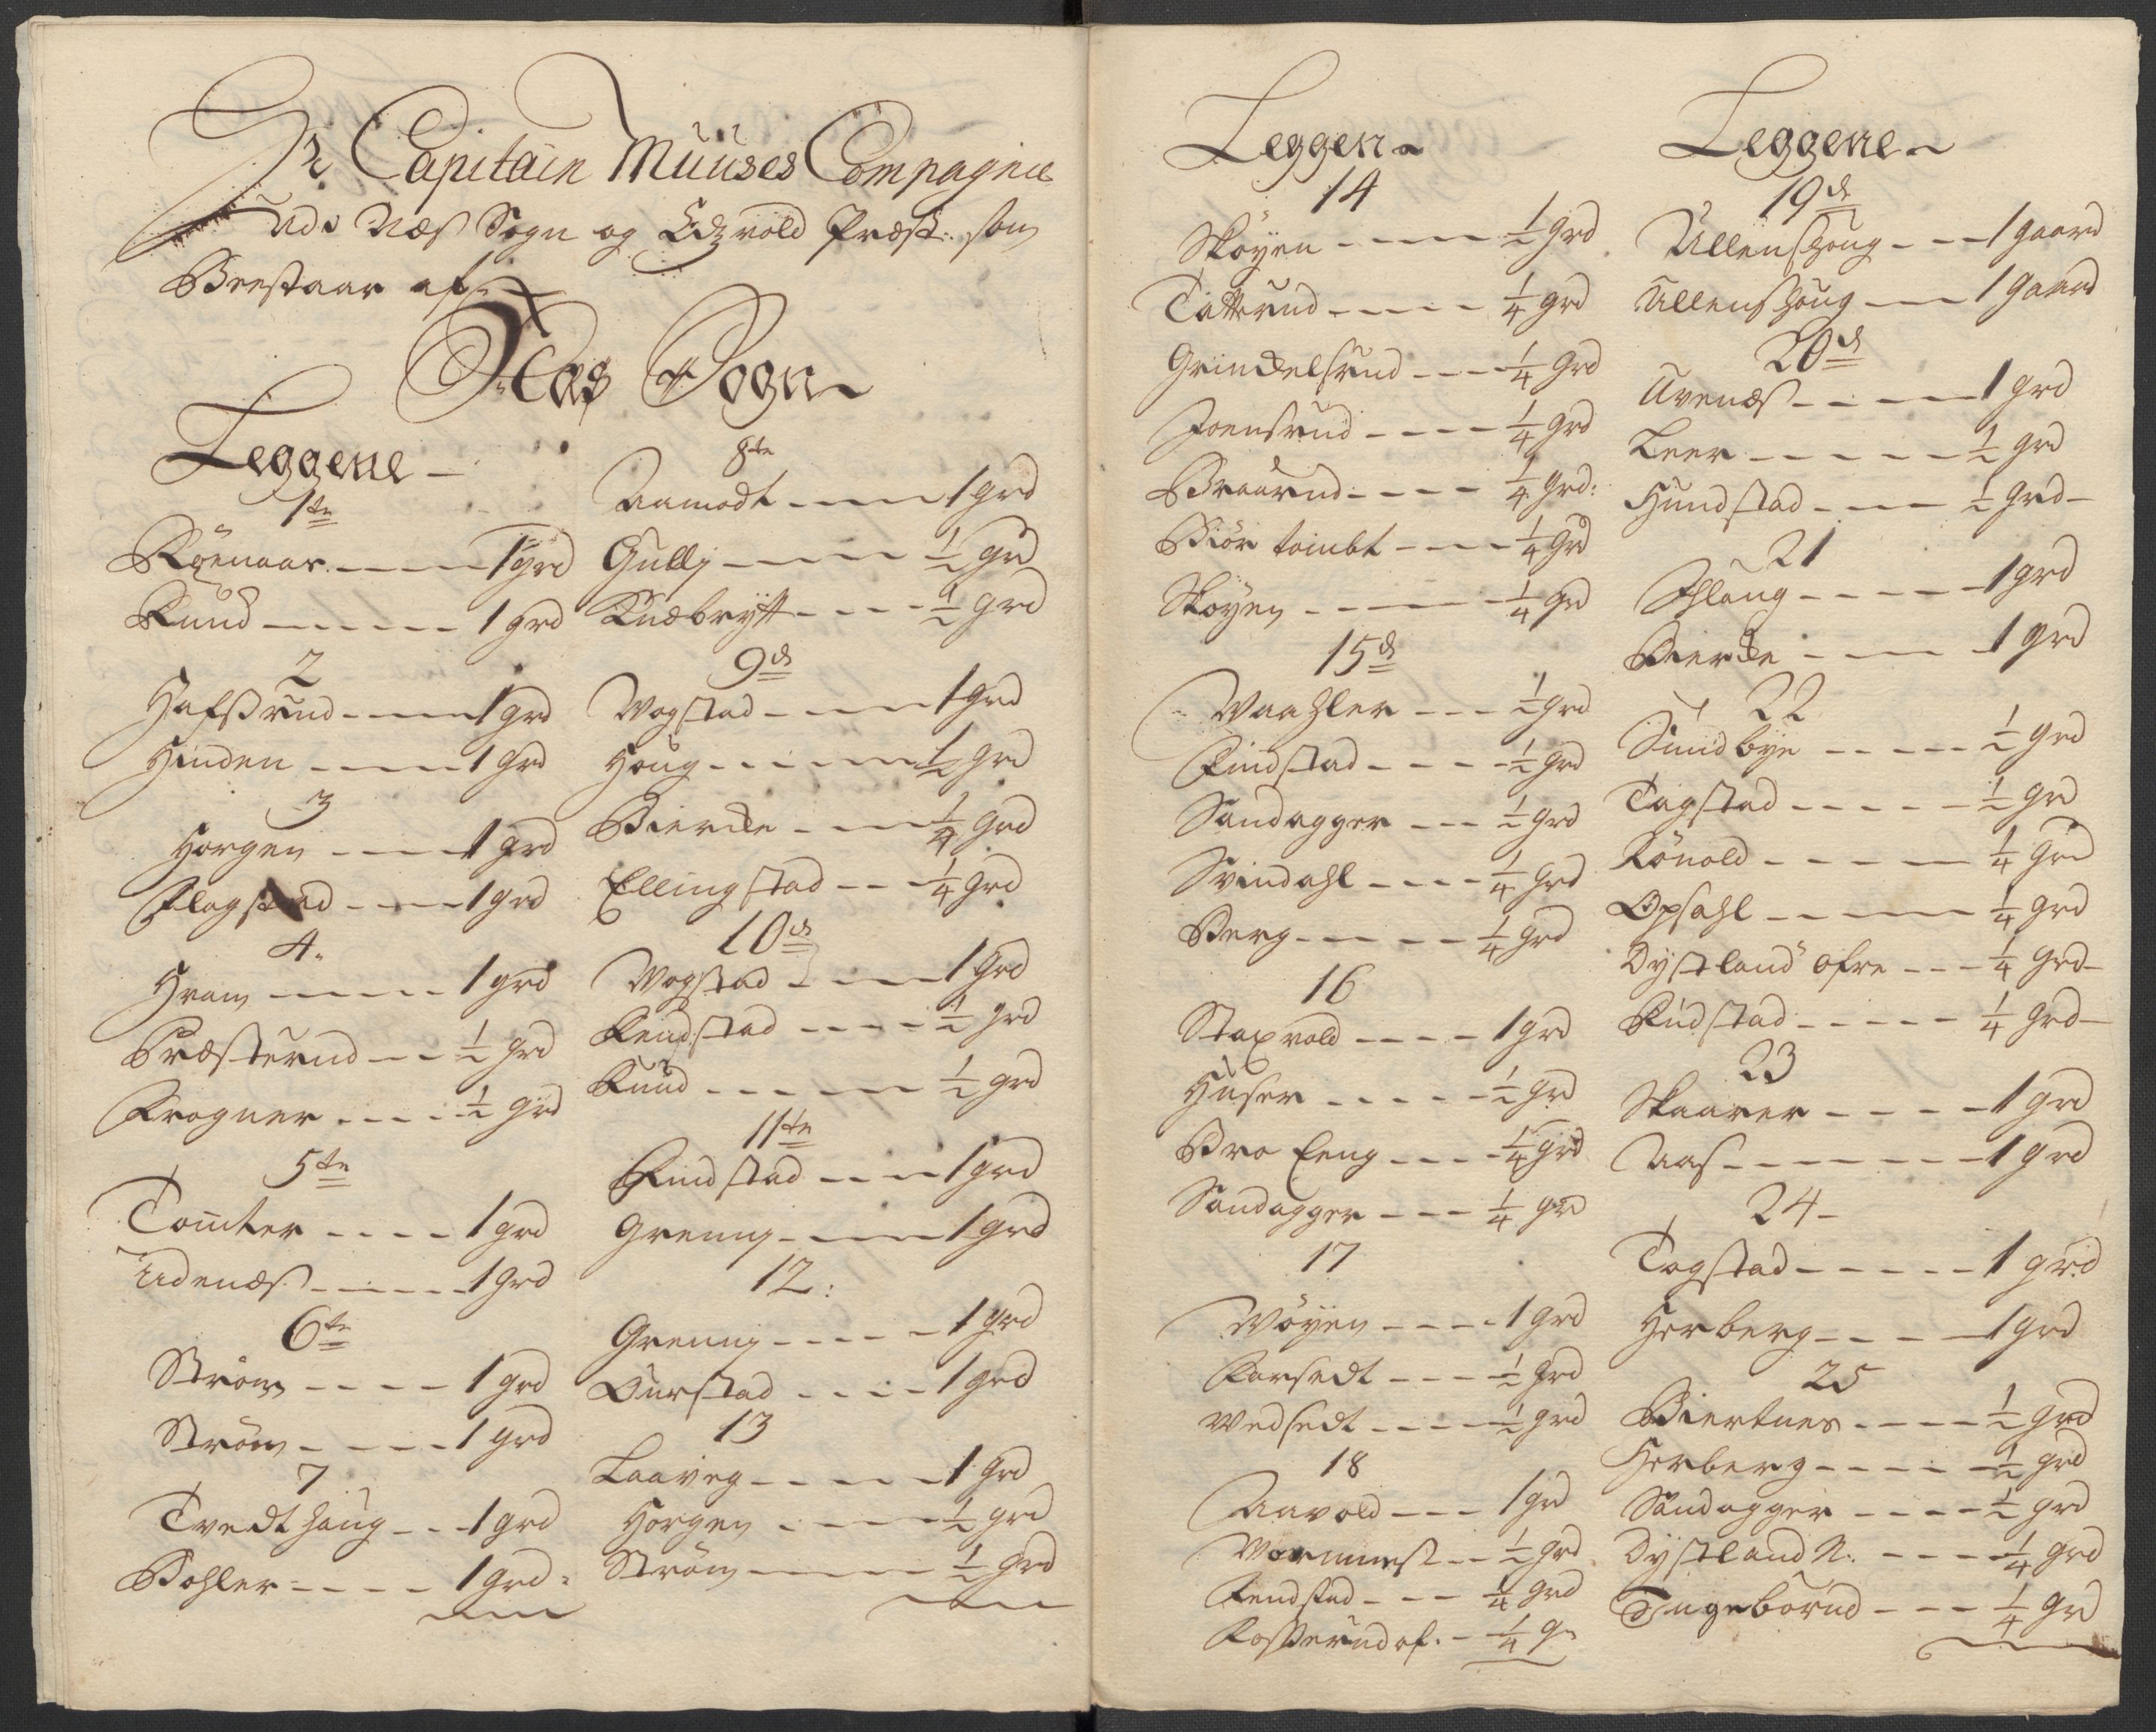 Hr Capitain Müüses Compagnie
Udi Næs Sogn og Edzvold Præst: som
Bestaar af
Næs Sogn
Leggene
1te
Röenaas 1 grd
Rund 1 grd
2
Hafsrud 1 grd
Hinden 1 grd
3
Horgen 1 grd
Flagstad 1 grd
4.
Hram 1 grd
Præsterud ½ grd
Frogner ½ grd
5te
Tomter 1 grd
Udenæs 1 grd
6te
Ström 1 grd
Ström 1 grd
7
Tvedt haug 1 grd
Bohler 1 grd
8te
Aamodt 1 grd
Gully ½ grd
Knæbrÿtt ½ grd
9de
Wogstad 1 grd
Houg ½ grd
Bierche ¼ grd
Ellingstad ¼ grd
10de
Wogstad 1 grd
Rendstad ½ grd
Ruud ½ grd
11te
Findstad 1 grd
Grenny 1 grd
12:
Grenny 1 grd
Ourstad 1 grd
13
Laaveg 1 grd
Horgen ½ grd
Ström ½ grd
Leggen
14
Skoyen ½ grd
Tatterud ¼ grd
Grindelsrud ¼ grd
Joensrud ¼ grd
Braarud ¼ grd:
Biör tombt ¼ grd
Skoyen ¼ grd
15de
Waahler ½ grd
Findstad ½ grd
Sandagger ½ grd
Svindahl ¼ grd
Berg ¼ grd
16
Staxvold 1 grd
Huser ½ grd
Bro Eeng ¼ grd
Sandagger ¼ grd
17
Wöyen 1 grd
Karsedt ½ grd
Wedsedt ½ grd
18
Aavold 1 grd
Wormnes ½ grd
Rendstad ¼ grd
Kosserud of. ¼ gr
Leggene
19de
Ullenshoug 1 gaard
Ullenshoug 1 gaard
20de
Uvenæs 1 grd
Leer ½ grd
Hundstad ½ grd
21
Ihlaug 1 grd
Bierche 1 grd
22
Sundbÿe ½ grd
Togstad ½ grd
Rönold ¼ grd
Opsahl ¼ grd
Dÿstland ofre ¼ grd
Rudstad ¼ grd
23
Skaarer 1 grd
Aas 1 grd
24
Togstad 1 grd
Herberg 1 grd
25
Biertnes ½ grd
Herberg ½ grd
Sandagger ½ grd
Dÿstland N: ¼ grd
Ingeborud ¼ grd